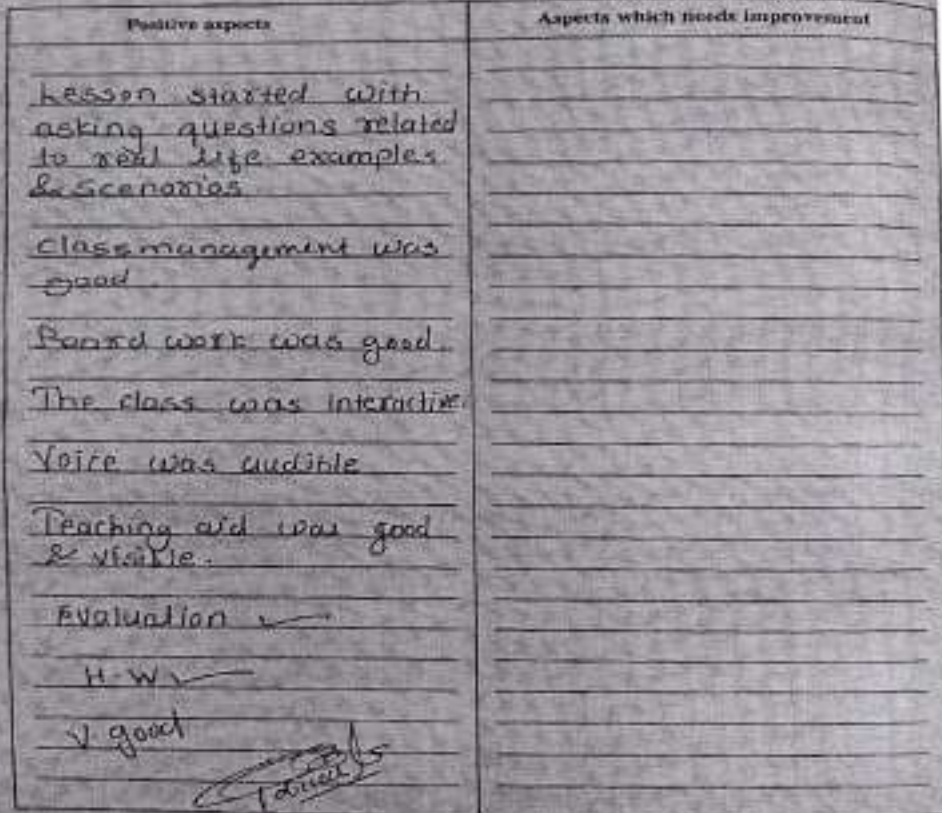 Positive aspects
Aspects which needs improvement
Lesson started with
asking questions related
to real life examples
& scenarios
class management was
good.
Board work was good.
The class was interactive.
Voice was audible
Teaching aid was good
& visible.
Evaluation ✓
H.W ✓
V. good